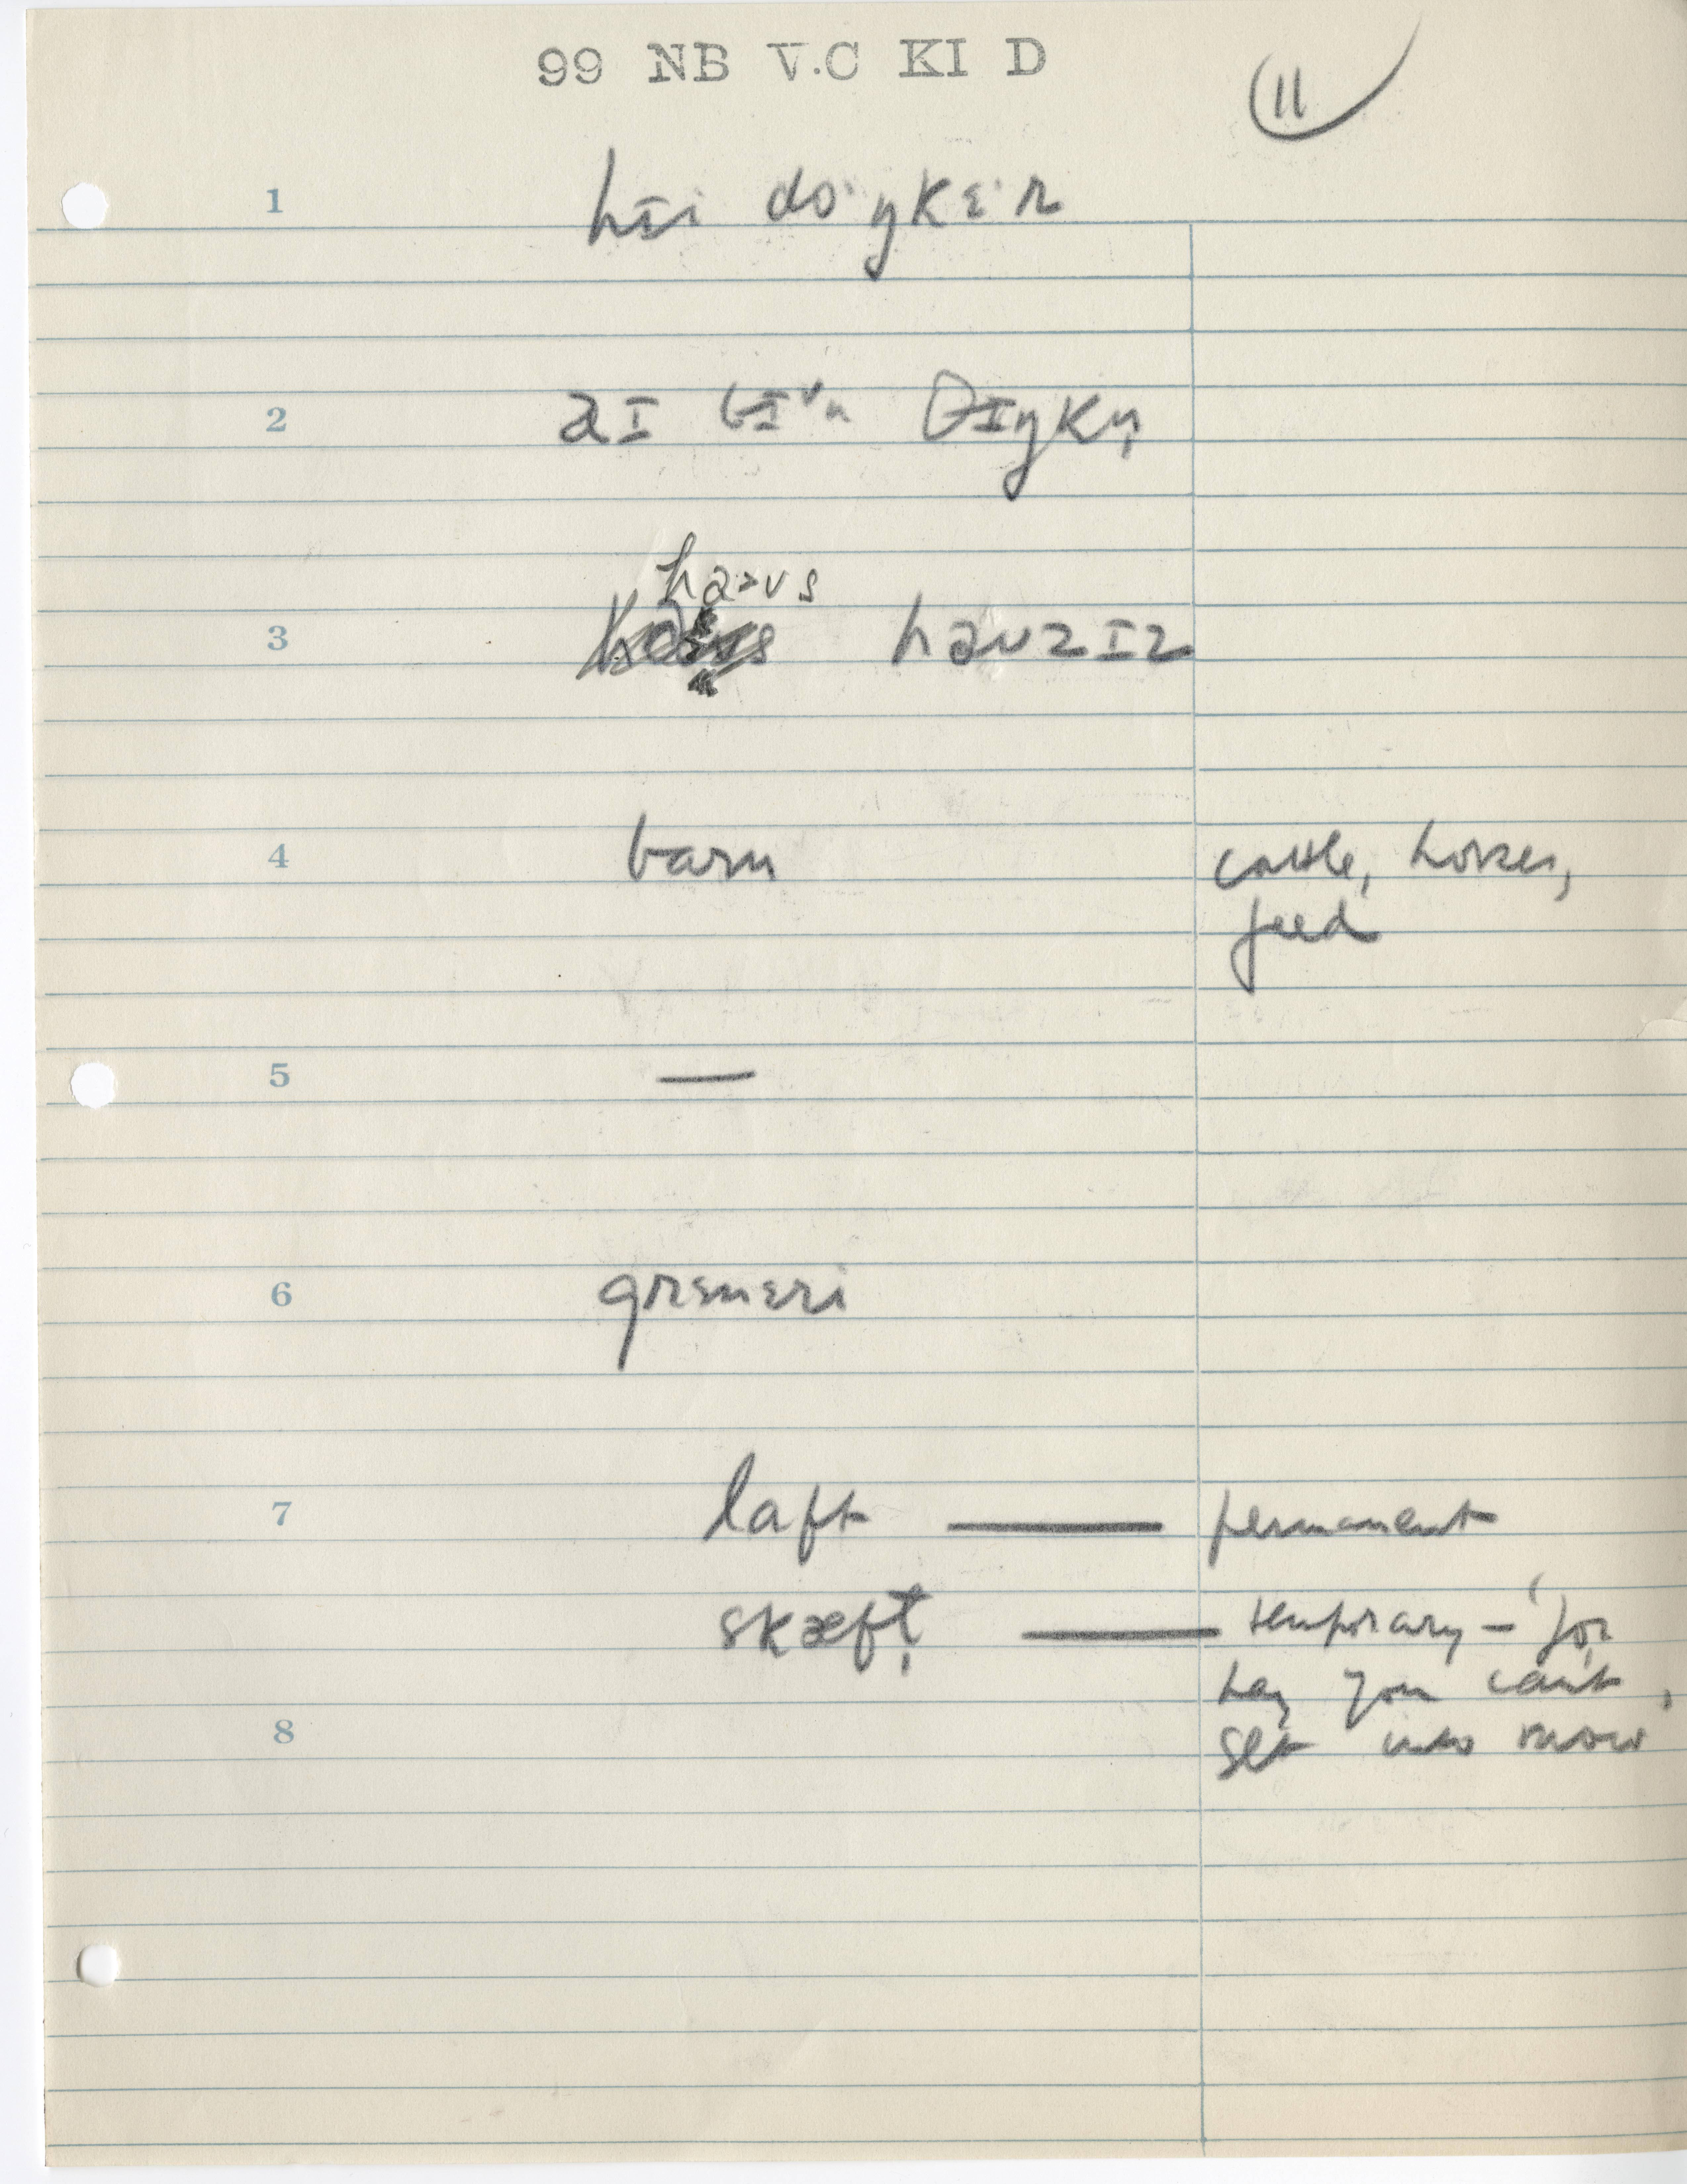 99 NB V.C KI D
11
1 hɪ̄i doˑŋkɛˑr
2 aɪ bɪᵛn θɪŋkn̩
haᵊʊs
3 haʊzɪz
4 barn cattle, horses,
feed
5 —
6 grɛnɛri
7 laft — permanent
skæft̬ — temporary – 'for
hay you can't
8 get into mow'